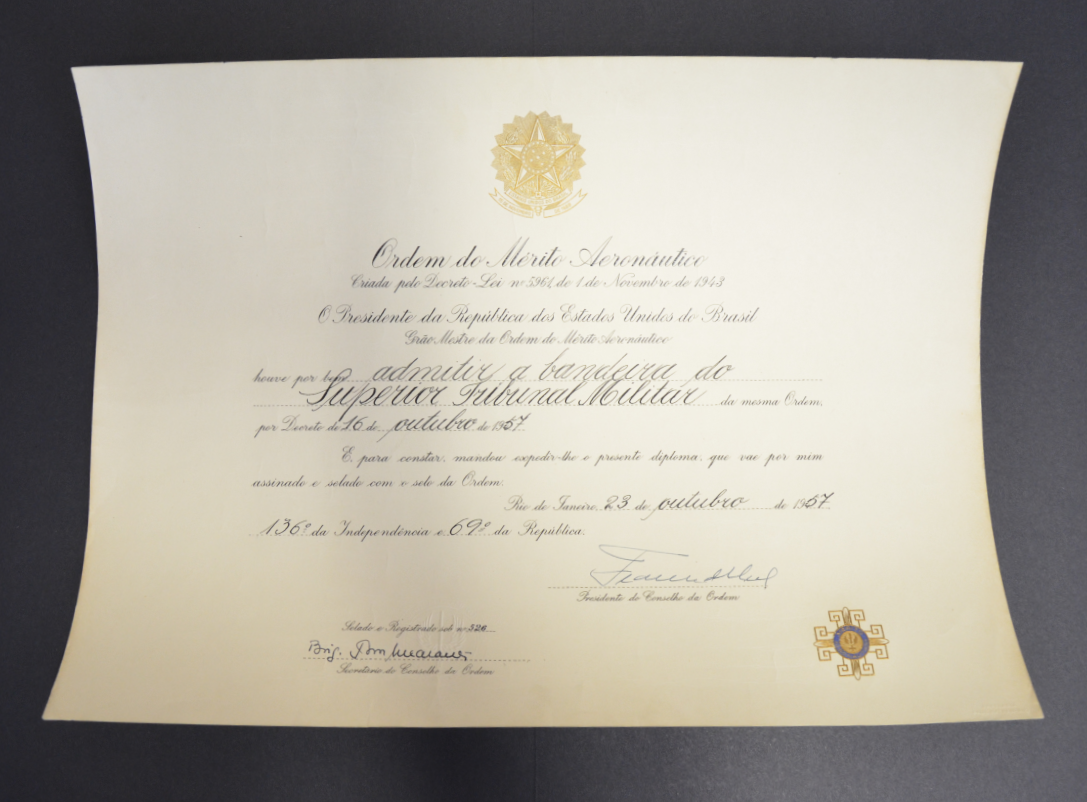 Ordem do Mérito Aeronáutico
Criada pelo Decreto-Lei nº 5961, de 1 de Novembro de 1943
O Presidente da República dos Estados Unidos do Brasil
Grão Mestre da Ordem do Mérito Aeronáutico
houve por bem admitir a bandeira do
Superior Tribunal Militar da mesma Ordem,
por Decreto de 16 de outubro de 1957
E, para constar, mandou expedir-lhe o presente diploma, que vae por mim
assinado e selado com o selo da Ordem.
Rio de Janeiro, 23 de outubro de 1957
136º da Independência e 69º da República.
Presidente do Conselho da Ordem
Selado e Registrado sob nº 526
Brig.
Secretário do Conselho da Ordem